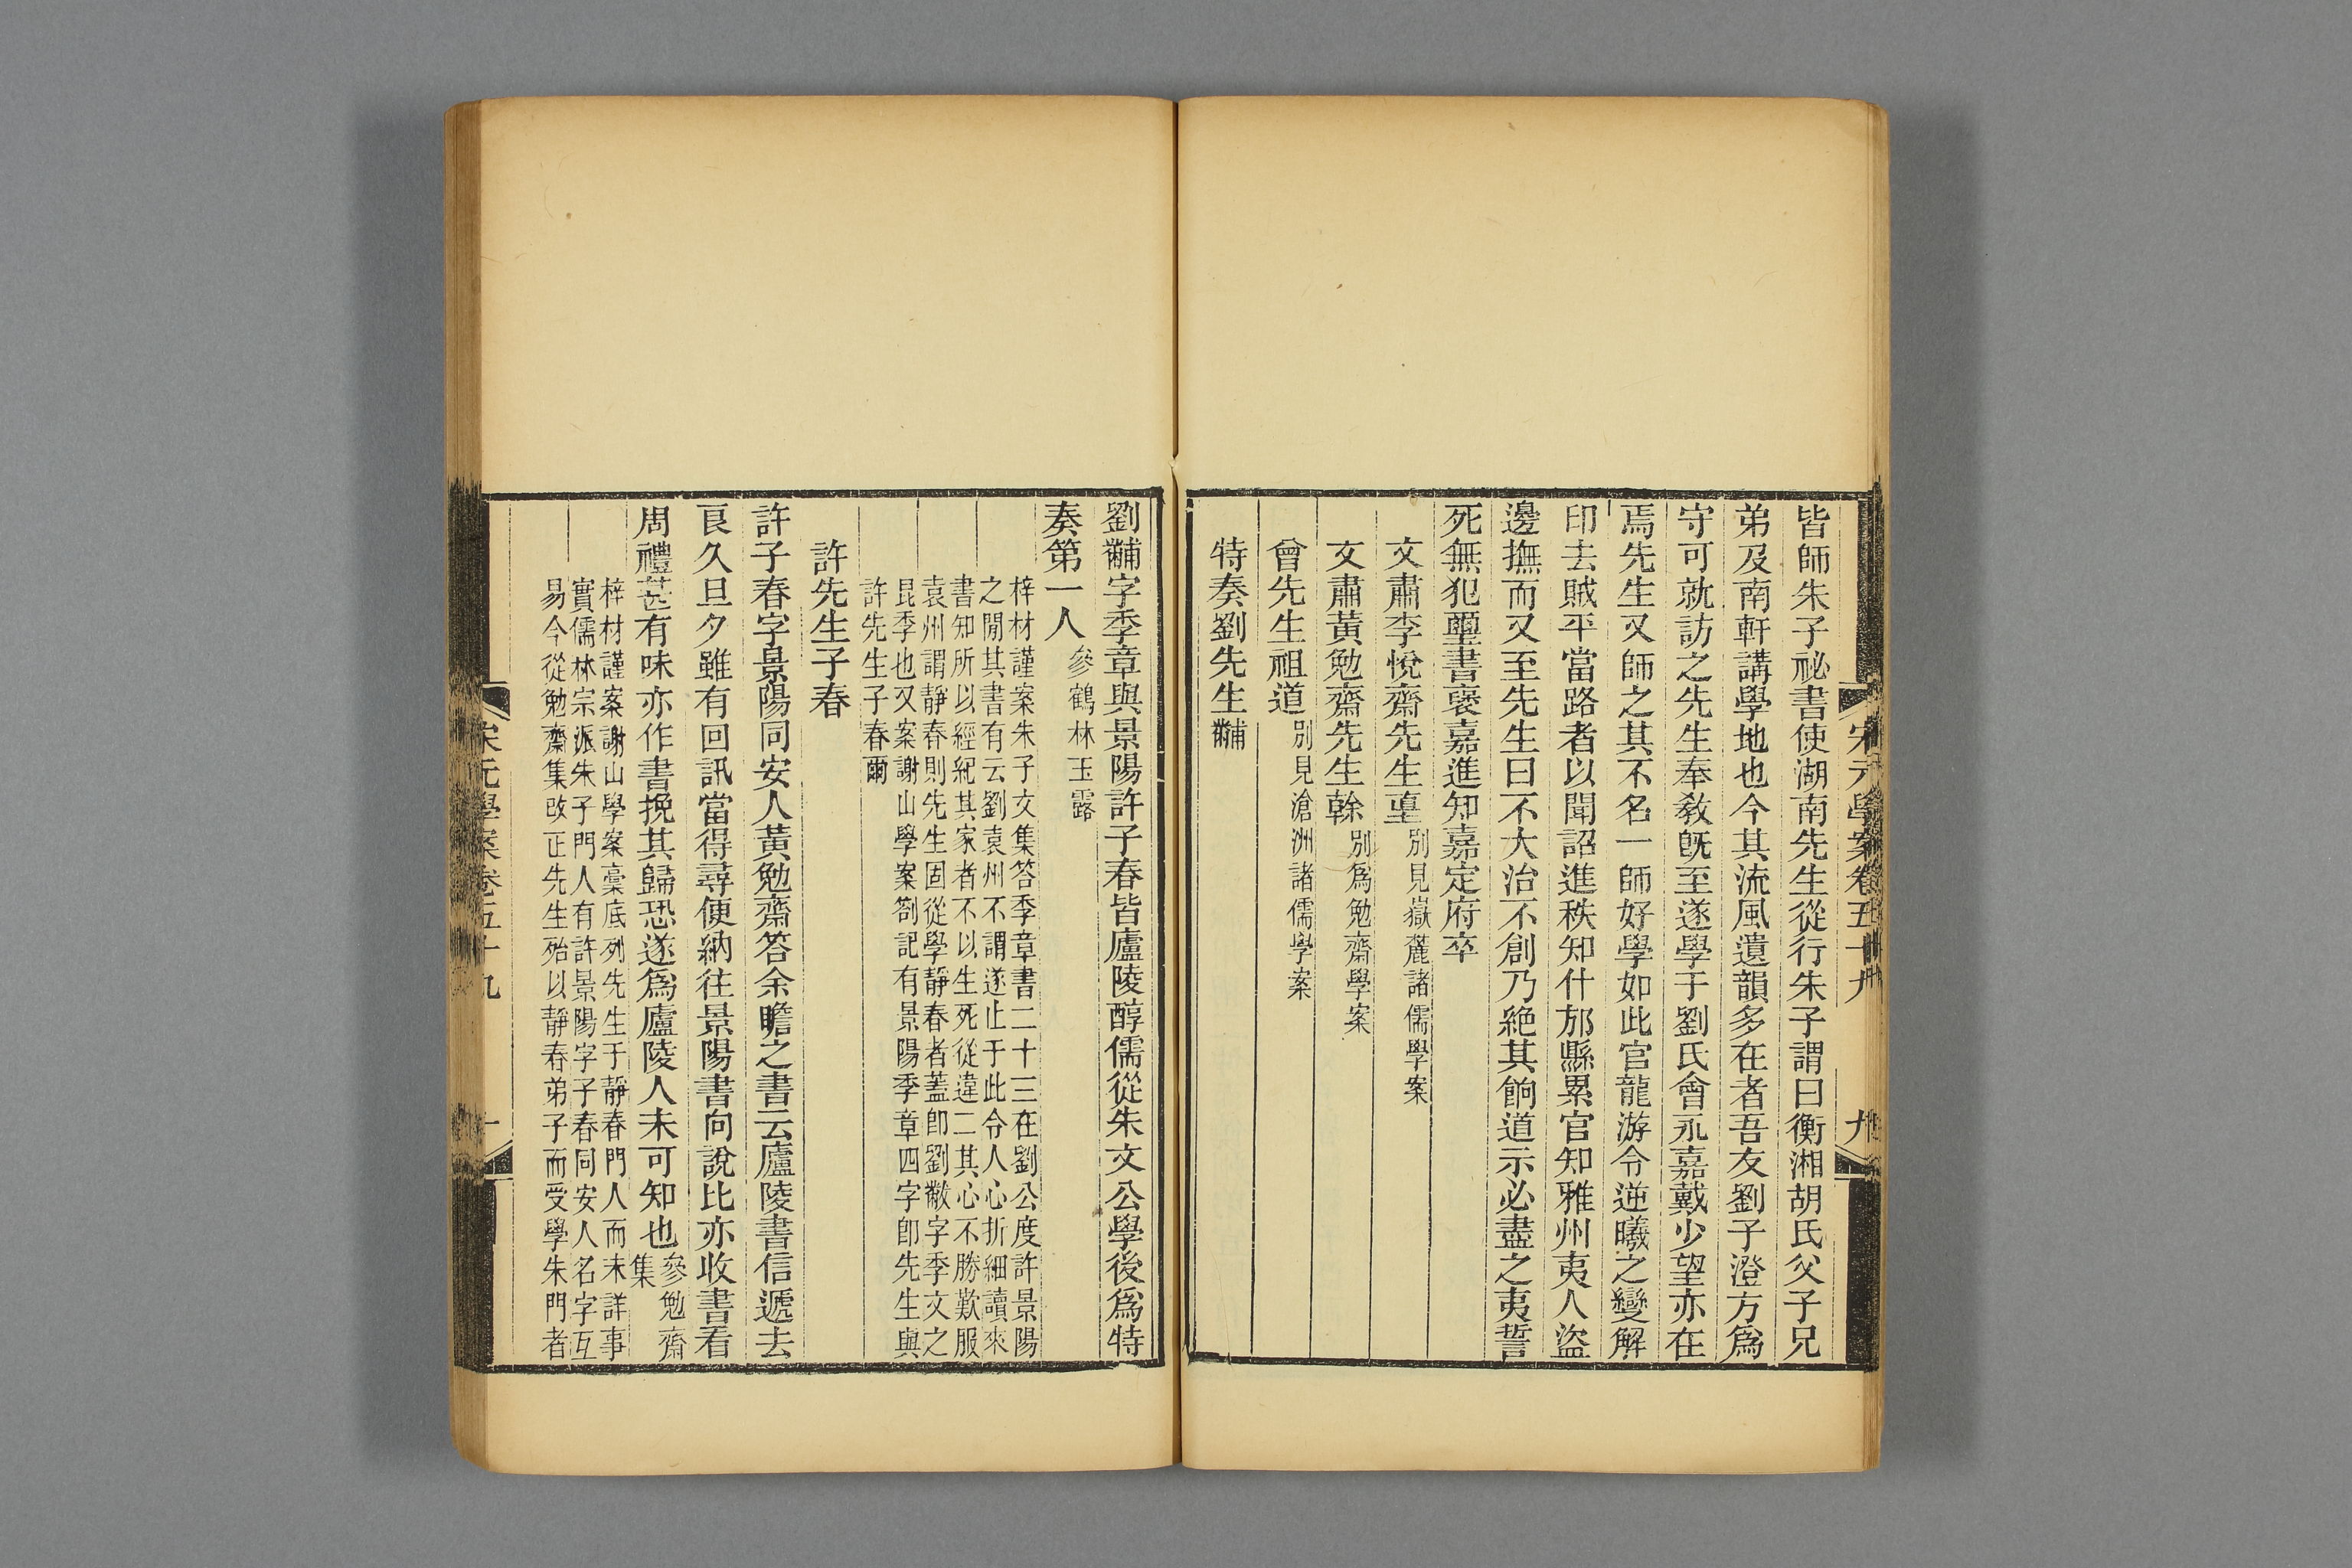 宋元學案卷五十九
九
皆師朱子祕書使湖南先生從行朱子謂曰衡湘胡氏父子兄
弟及南軒講學地也今其流風遺韻多在者吾友劉子澄方爲
守可就訪之先生奉敎旣至遂學于劉氏會永嘉戴少望亦在
焉先生又師之其不名一師好學如此官龍游令逆曦之變解
印去賊平當路者以聞詔進秩知什邡縣累官知雅州夷人盜
邊撫而又至先生曰不大治不創乃絶其餉道示必盡之夷誓
死無犯璽書襃嘉進知嘉定府卒
文肅李悅齋先生𡌴別見嶽麓諸儒學案
文肅黃勉齋先生榦別爲勉齋學案
曾先生祖道別見滄洲諸儒學案
特奏劉先生黼
劉黼字季章與景陽許子春皆廬陵醇儒從朱文公學後爲特
奏第一人參鶴林玉露
梓材謹案朱子文集答季章書二十三在劉公度許景陽
之閒其書有云劉袁州不謂遂止于此令人心折細讀來
書知所以經紀其家者不以生死從違二其心不勝歎服
袁州謂靜春則先生固從學靜春者蓋卽劉黻字季文之
昆季也又案謝山學案劄記有景陽季章四字卽先生與
許先生子春爾
許先生子春
許子春字景陽同安人黃勉齋答余瞻之書云廬陵書信遞去
良久旦夕雖有回訊當得尋便納往景陽書向說比亦收書看
周禮甚有味亦作書挽其歸恐遂爲廬陵人未可知也參勉齋
集
梓材謹案謝山學案稾底列先生于靜春門人而未詳事
實儒林宗派朱子門人有許景陽字子春同安人名字互
易今從勉齋集改正先生殆以靜春弟子而受學朱門者
宋元學案卷五十九